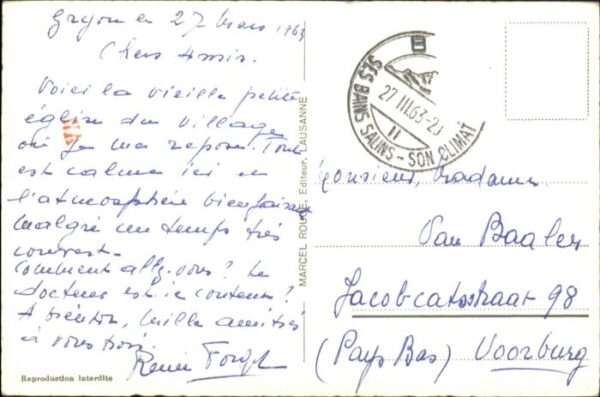 Gryon le 27 Mars 1963
Chers Amis.
Voici la vieille petite
église du village
où je me repose. Tout
est calme ici et
l'atmosphère bienfaisante
malgré un temps très
couvert.
Comment allez-vous? Le
docteur est-il content?
A bientôt, mille amitiés
à vous trois.
Reproduction interdite
MARCEL ROUGE, Editeur, LAUSANNE
SES BAINS SALINS - SON CLIMAT
27 III.63-20
II
Monsieur, Madame
Van Baalen
Jacob catsstraat 98
(Pays Bas) Voorburg